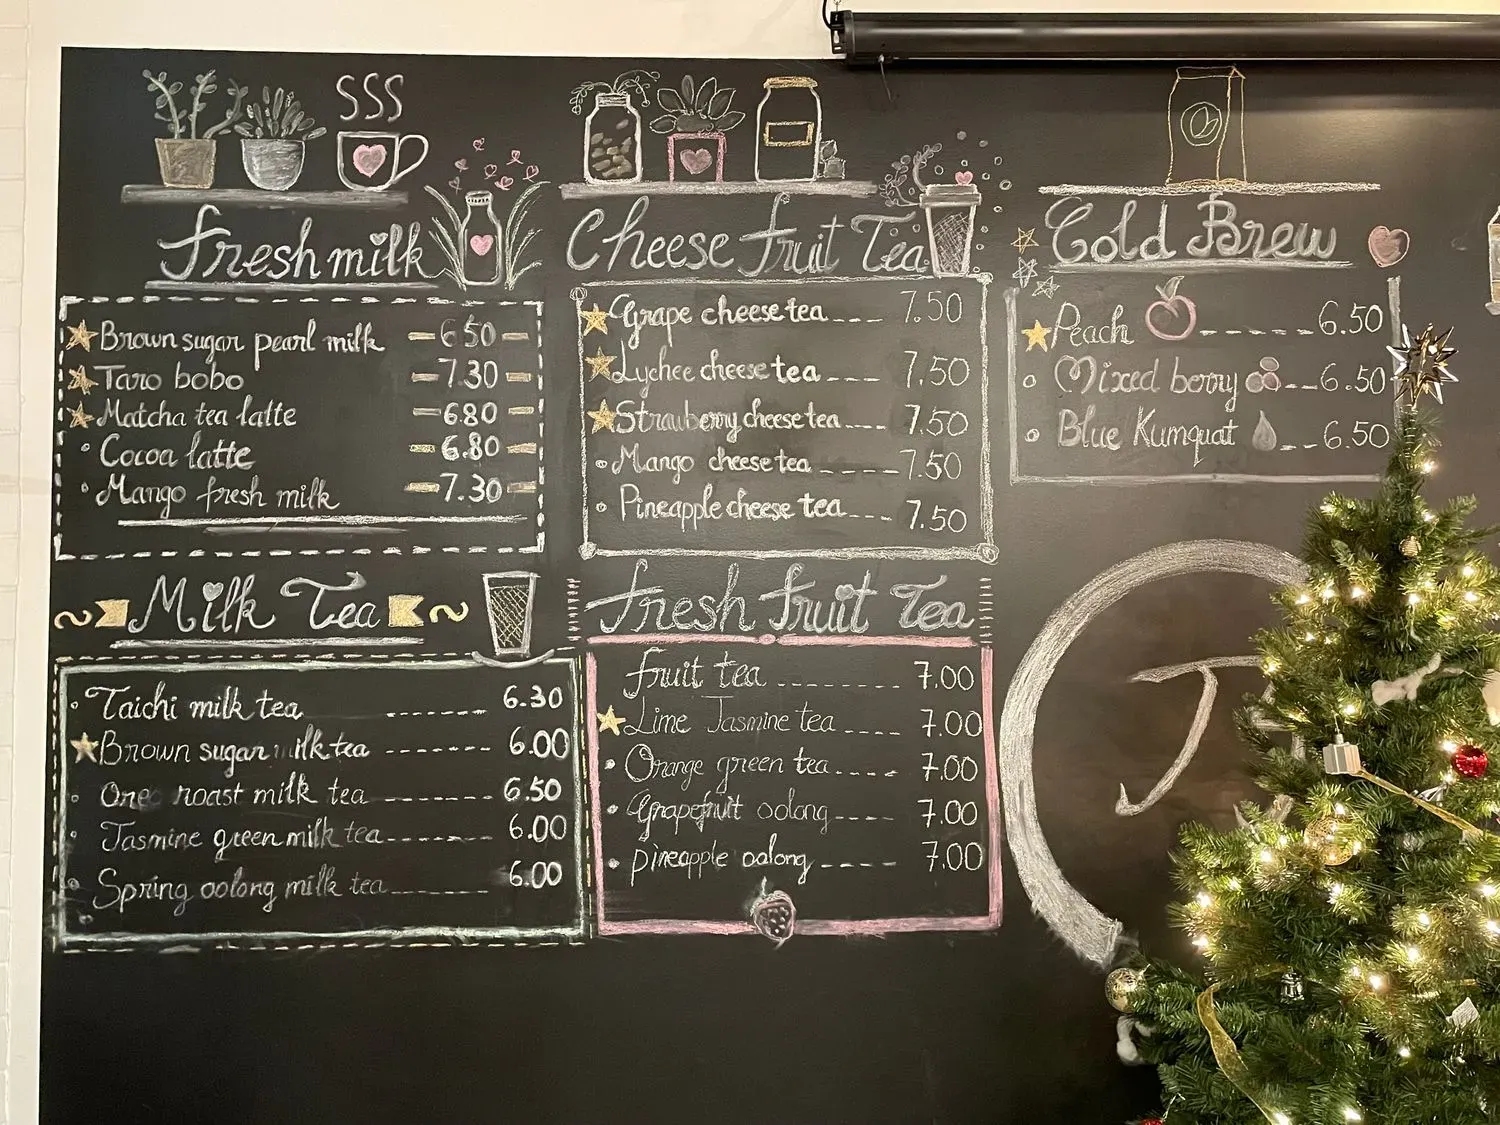 Fresh milk
Brown sugar pearl milk 6.50
Taro bobo 7.30
Matcha tea latte 6.80
Cocoa latte 6.80
Mango fresh milk 7.30
Milk Tea
Taichi milk tea 6.30
Brown sugar milk tea 6.00
One roast milk tea 6.50
Jasmine green milk tea 6.00
Spring oolong milk tea 6.00
Cheese fruit Tea
Grape cheese tea 7.50
Lychee cheese tea 7.50
Strawberry cheese tea 7.50
Mango cheese tea 7.50
Pineapple cheese tea 7.50
Fresh fruit Tea
fruit tea 7.00
Lime Jasmine tea 7.00
Orange green tea 7.00
Grapefruit oolong 7.00
pineapple oolong 7.00
Cold Brew
Peach 6.50
Mixed berry 6.50
Blue Kumquat 6.50